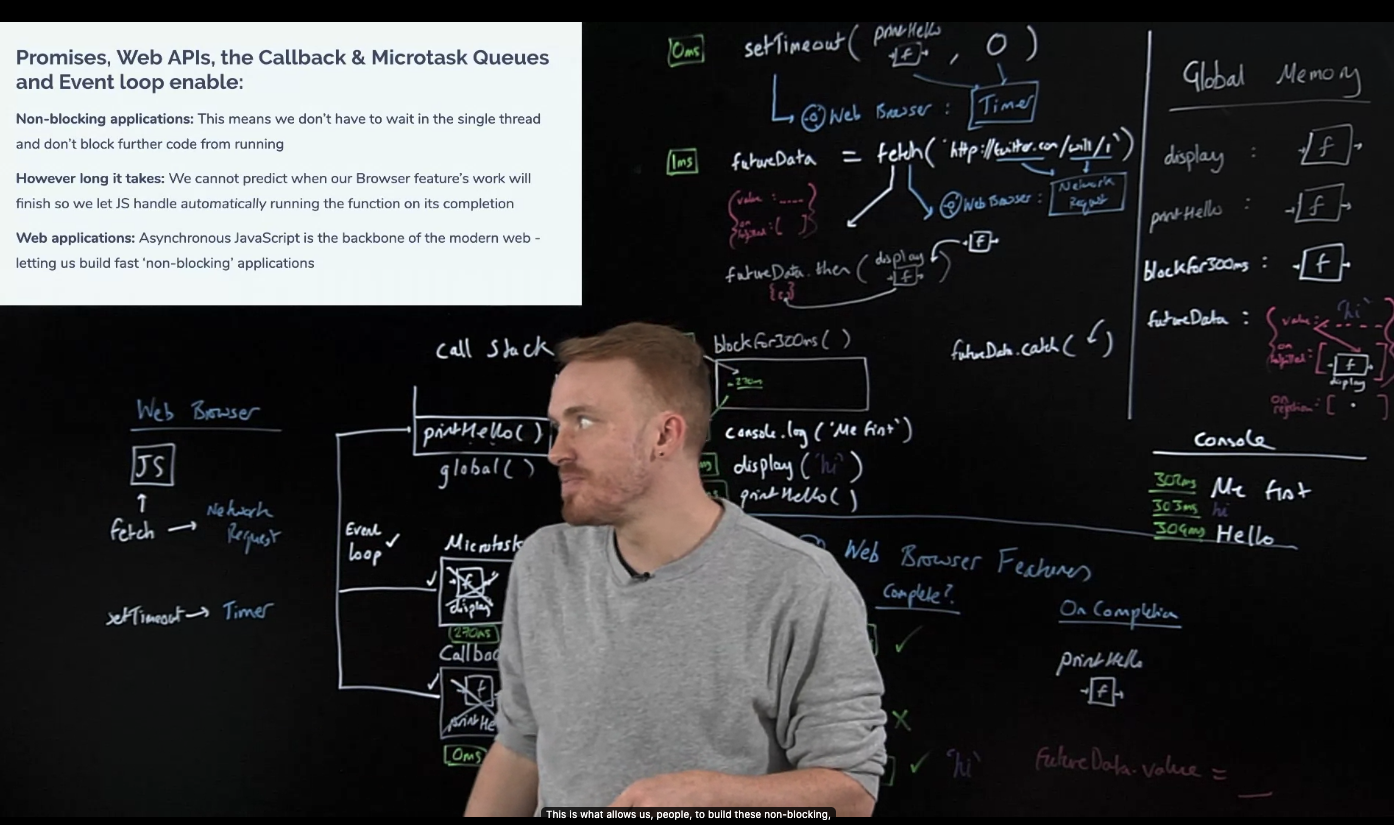 Promises, Web APIs, the Callback & Microtask Queues
and Event loop enable:
Non-blocking applications: This means we don't have to wait in the single thread
and don't block further code from running
However long it takes: We cannot predict when our Browser feature's work will
finish so we let JS handle automatically running the function on its completion
Web applications: Asynchronous JavaScript is the backbone of the modern web -
letting us build fast 'non-blocking' applications
0ms
setTimeout( printHello
f , 0 )
Web Browser : Timer
1ms
futureData = fetch('http://twitter.com/will/1')
{value : .....
on
[ ] }
Web Browser : Network
Request
f
futureData.then ( display
f )
blockfor300ms( )
270ms
futureData.catch( )
console.log('Me first')
display('hi')
printHello( )
Global Memory
display : f
printHello : f
blockfor300ms : f
futureData : { value: 'hi'
on
[ f ]
display
on
rejection: [ . ]
Console
302ms Me first
303ms hi
304ms Hello
Call Stack
printHello( )
global( )
Web Browser
JS
fetch → Network
Request
setTimeout → Timer
Event
loop ✓
Microtask
f
display
(270ms)
Callbac
f
printHe
0ms
Web Browser Features
Complete?
On Completion
✓
printHello
f
X
✓ 'hi'
futureData.value = __
This is what allows us, people, to build these non-blocking,